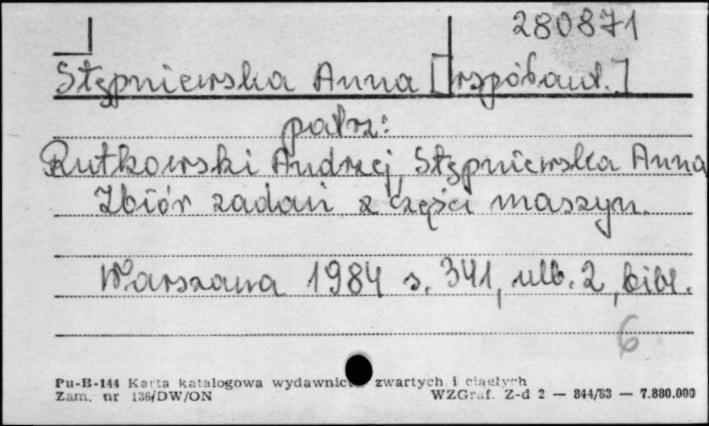 280871
Stępniewska Anna [współaut.]
patrz:
Rutkowski Andrzej, Stępniewska Anna
Zbiór zadań z części maszyn.
Warszawa 1984 s. 341, ulb. 2, bibl.
6
Pu-B-144 Karta katalogowa wydawnictw zwartych i ciągłych
Zam. nr 136/DW/ON WZGraf. Z-d 2 — 844/83 — 7.880.000